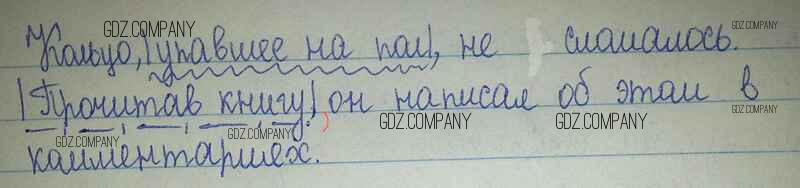 Кольцо, |упавшее на пол|, не сломалось.
|Прочитав книгу,| он написал об этом в
комментариях.
GDZ.COMPANY
GDZ.COMPANY
GDZ.COMPANY
GDZ.COMPANY
GDZ.COMPANY
GDZ.COMPANY
GDZ.COMPANY
GDZ.COMPANY